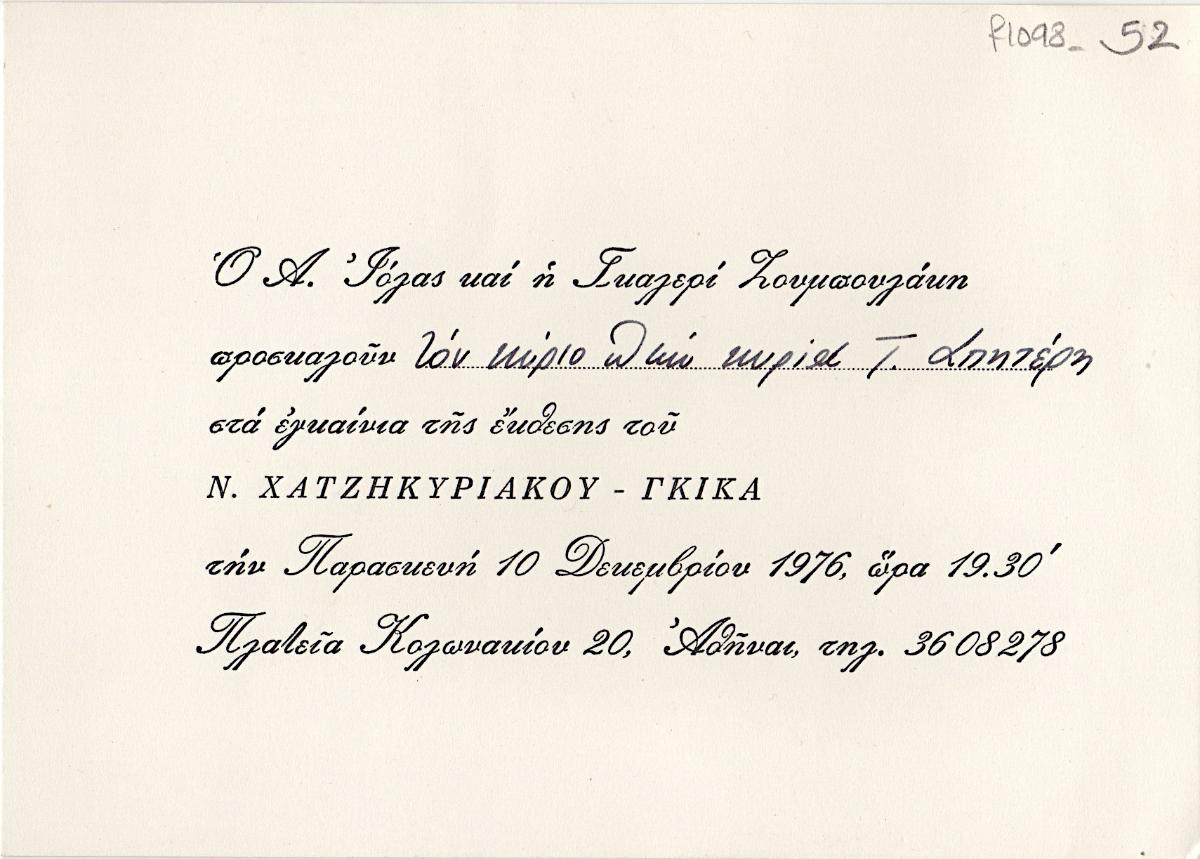 f1098_ 52
Ὁ Α. Ἰόλας καί ἡ Γκαλερί Ζουμπουλάκη
προσκαλοῦν τόν κύριο καί κυρία Τ. Σπητέρη
στά ἐγκαίνια τῆς ἔκθεσης τοῦ
Ν. ΧΑΤΖΗΚΥΡΙΑΚΟΥ - ΓΚΙΚΑ
τήν Παρασκευή 10 Δεκεμβρίου 1976, ὥρα 19.30'
Πλατεῖα Κολωνακίου 20, Ἀθῆναι, τηλ. 3608278